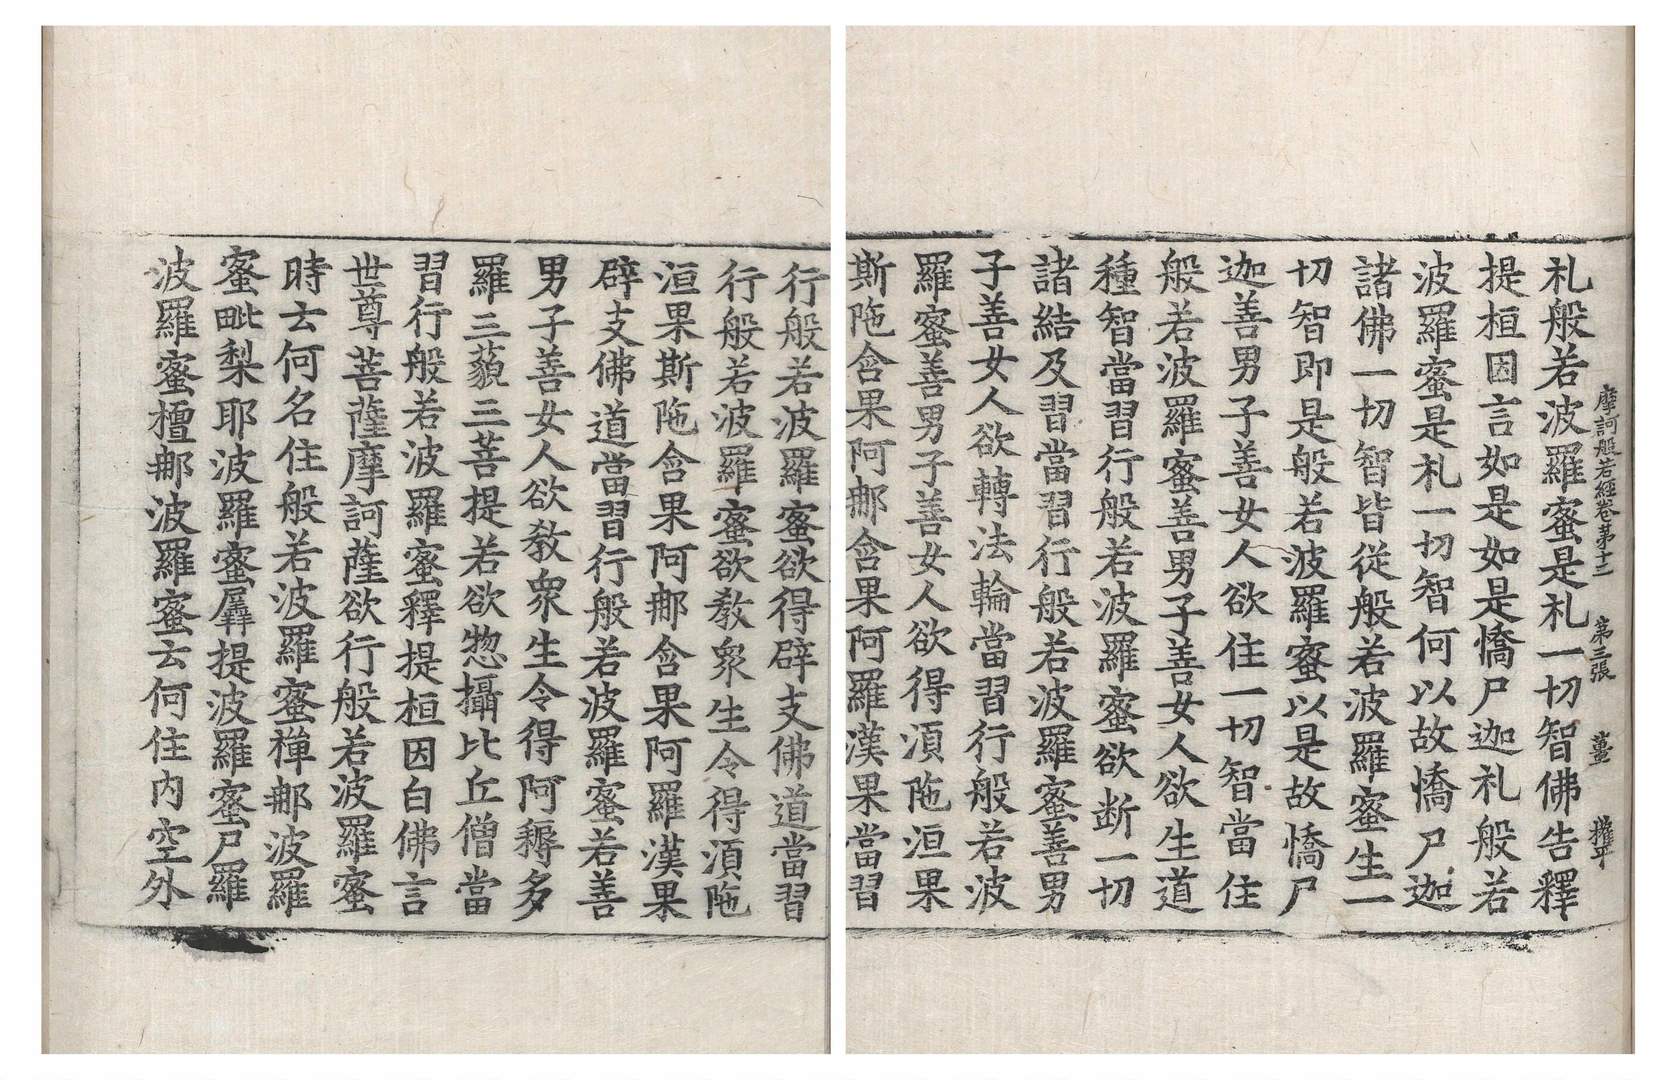 摩訶般若經卷第十二 第三張 薑 權平
札般若波羅蜜是札一切智佛告釋
提桓因言如是如是憍尸迦札般若
波羅蜜是札一切智何以故憍尸迦
諸佛一切智皆從般若波羅蜜生一
切智即是般若波羅蜜以是故憍尸
迦善男子善女人欲住一切智當住
般若波羅蜜善男子善女人欲生道
種智當習行般若波羅蜜欲断一切
諸結及習當習行般若波羅蜜善男
子善女人欲轉法輪當習行般若波
羅蜜善男子善女人欲得湏陁洹果
斯陁含果阿那含果阿羅漢果當習
行般若波羅蜜欲得辟支佛道當習
行般若波羅蜜欲教衆生令得湏陁
洹果斯陁含果阿那含果阿羅漢果
辟支佛道當習行般若波羅蜜若善
男子善女人欲教衆生令得阿耨多
羅三藐三菩提若欲惣攝比丘僧當
習行般若波羅蜜釋提桓因白佛言
世尊菩薩摩訶薩欲行般若波羅蜜
時云何名住般若波羅蜜禪那波羅
蜜毗梨耶波羅蜜羼提波羅蜜尸羅
波羅蜜檀那波羅蜜云何住内空外